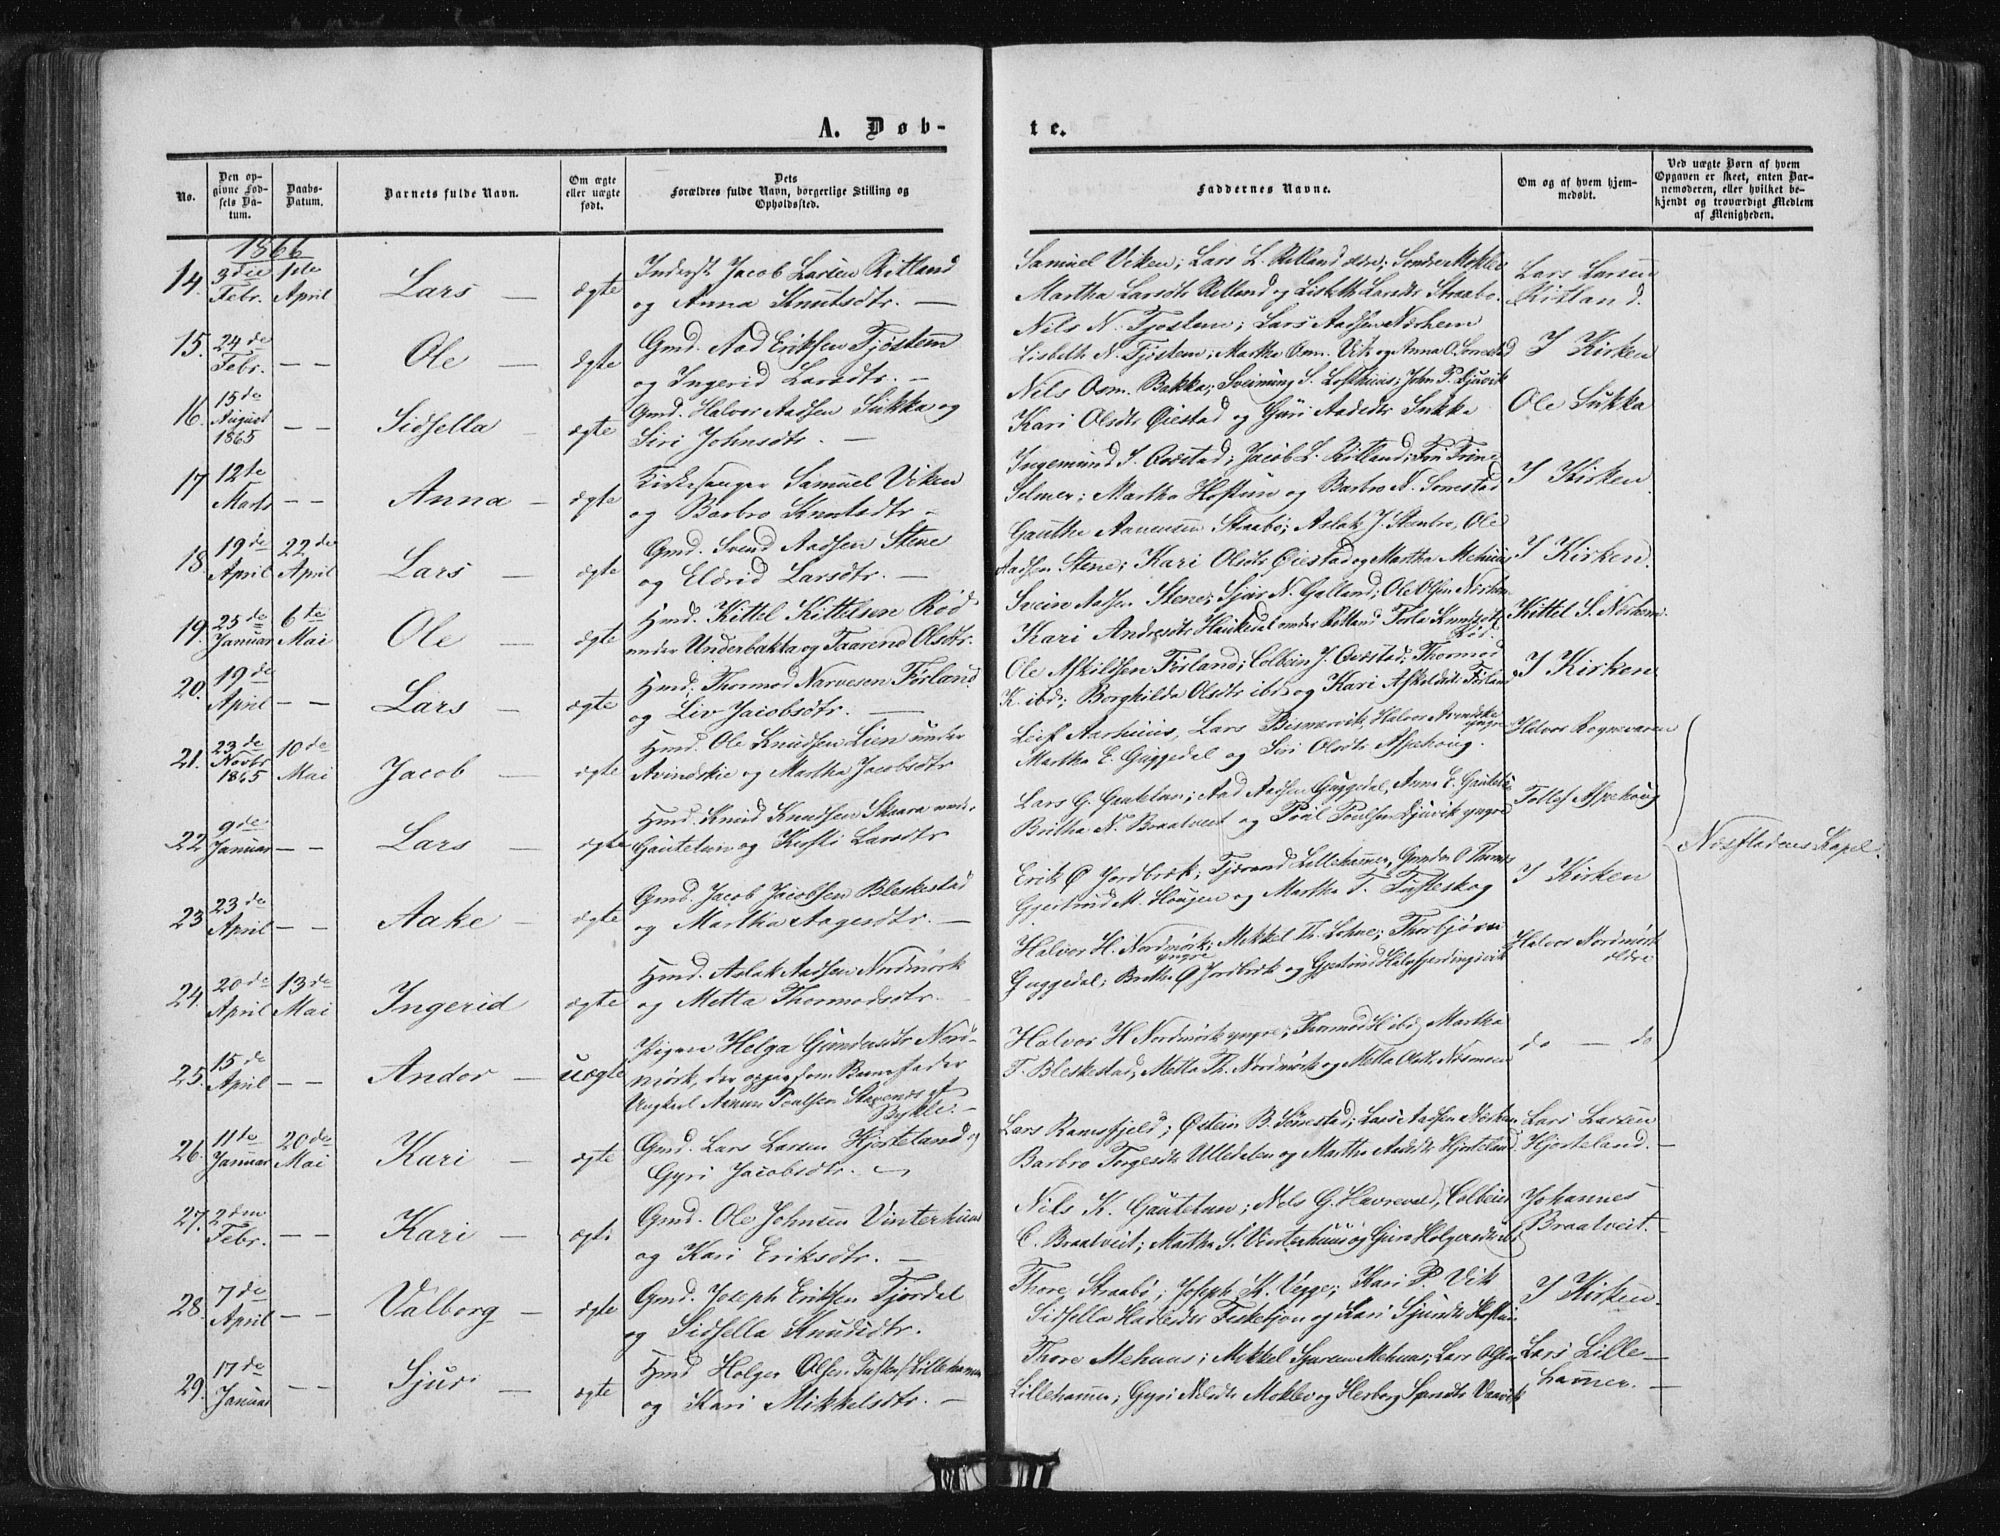 A. Døb-
te.
No.
Den op-
givne Fød-
sels Da-
tum.
Daabs-
Datum.
Barnets fulde Navn.
Om ægte
eller uægte
født.
Dets
Forældres fulde Navn, borgerlige Stilling og
Opholdssted.
Faddernes Navne.
Om og af hvem hjem-
medøbt.
Ved uægte Børn af hvem
Opgaven er skeet, enten Bar-
nemoderen, eller hvilket be-
kjendt og troværdigt Medlem
af Menigheden.
1866
14. 3die Febr. 1ste April Lars — ægte
Inderst Jacob Larsen Ritland
og Anna Knutsdtr. —
Samuel Viken; Lars L. Ritland ældre; Sondre Moklev
Martha Larsdtr Ritland og Lisbeth Larsdtr Straabø.
Lars Larsen
Ritland.
15. 24de Febr. — — Ole — ægte
Gmd. Aad Eriksen Fjostein
og Ingerid Larsdtr. —
Nils N. Tjostein; Lars Aadsen Nærhem
Lisbeth N. Tjøstem; Martha Osm. Vik og Anna O. Sørestad
I Kirken
16. 15de August 1865 — — Sidsella — ægte
Gmd. Halvor Aadsen Sukka og
Siri Johnsdtr. —
Nils Osm. Bakka; Sveinung S. Lofthuus; John P. Djuvik
Kari Olsdtr Øiestad og Guri Aadsdtr Sukka
Ole Sukka
17. 12te Marts — — Anna — ægte
Kirkesanger Samuel Viken
og Barbro Knutsdtr —
Ingemund S. Øvrstad; Jacob L. Ritland; Frü Trine
Selmer; Martha Hoftun og Barbro N. Sørestad
I Kirken
18. 19de April 22de April Lars — ægte
Gmd. Svend Aadsen Stene
og Eldrid Larsdtr. —
Gauthe Aanensen Straabø; Aslak J. Stenbro, Ole
Aadsen Stene; Kari Olsdtr Øiestad og Martha Mehuus
I Kirken.
19. 25de Januar 6te Mai Ole — ægte
Hmd. Kittel Kittelsen Rød
under Underbakka og Taarend Olsdtr.
Svein Aadsen Stene; Sjur N. Galland; Ole Olsen Nærhem
Kari Andresdtr Haukedal under Ritland Torla Knudsdtr
Rød.
Kittel S. Nærhem.
20. 19de April — — Lars — ægte
Hmd. Thormod Narvesen Førland
og Liv Jacobsdtr. —
Ole Askildsen Førland; Colbein J. Øvrstad; Thormod
K. ibd; Borghilda Olsdtr ibd og Kari Askeldsdtr Førland
I Kirken
21. 23de Novbr 1865 10de Mai Jacob — ægte
Hmd. Ole Knudsen Lien under
Avindskie og Martha Jacobsdtr
Leif Aarhuus, Lars Bismarvik, Halvor Avendskie
yngre
Martha E. Guggedal og Siri Olsdtr Aspehoug.
Halvor Rognevaren
22. 9de Januar — — Lars — ægte
Hmd. Knud Knudsen Skaara under
Gautetun og Kisti Larsdtr
Lars G. Gautetun; Aad Aadsen Guggedal, Anna E. Gautetun
Britha N. Braatveit og Poul Poulsen Djuvik yngre
Tollef Aspehoug
Næsfladens Kapel.
23. 23de April — — Aake — ægte
Gmd. Jacob Jacobsen Bleskestad
og Martha Aagesdtr. —
Erik Ø Jordbræk; Tjerand Lillehammer, Gunder O Thomas
Gjertrud M. Hougen og Martha T. Tufteskog
I Kirken
24. 20de April 13de Mai Ingerid — ægte
Hmd. Aslak Aadsen Nordmork
og Metta Thormodsdtr. —
Halvor H. Nordmørk; Mekkel Th. Lohne; Thorbjørn
yngre
Guggedal; Britha Ø Jordbræk og Gjertrud Halvfjerdingsvik
Halvor Nordmørk
ældre
25. 15de April — — Andor — uægte
Pigen Helga Gundersdtr Nord-
mørk, der opgav som Barnefader
Ungkarl Aanun Poulsen Stavenes af
Bykle. —
Halvor H Nordmørk yngre; Thormod H ibd; Martha
T. Bleskestad, Metta Th. Nordmørk og Metta Olsdtr Næsmoen
do — do
26. 11te Januar 20de Mai Kari — ægte
Gmd. Lars Larsen Hjorteland og
Gyri Jacobsdtr. —
Lars Ramsfjeld; Østein B. Sørestad; Lars Aadsen Nærhem
Barbro Torgesdtr Ulledalen og Martha Aadsdtr Hjorteland
Lars Larsen
Hjorteland. —
27. 2den Febr. — — Kari — ægte
Gmd. Ole Johnsen Vinterhuus
og Kari Eriksdtr. —
Nils K. Gautetun; Nels G. Havrevold, Colbein
C. Braatveit; Martha S. Vinterhuus og Guro Holgersdtr ibd
Johannes
Braatveit. —
28. 7de April — — Valborg — ægte
Gmd. Joseph Eriksen Fjordal
og Sidsella Knudsdtr.
Thore Straabø; Joseph K. Vegge; Kari P. Vik
Sidsella Hadlesdtr Fisketjon og Kari Sjursdtr Hoftun
I Kirken.
29. 17de Januar — — Sjur — ægte
Hmd Holger Olsen Lillehammer
og Kari Mikkelsdtr. —
Thore Mehuus; Mikkel Sjursen Mehuus; Lars Olsen
Lillehammer; Gyri Nilsdtr Moklev og Herborg Vaavik
Lars Lille—
hammer. —